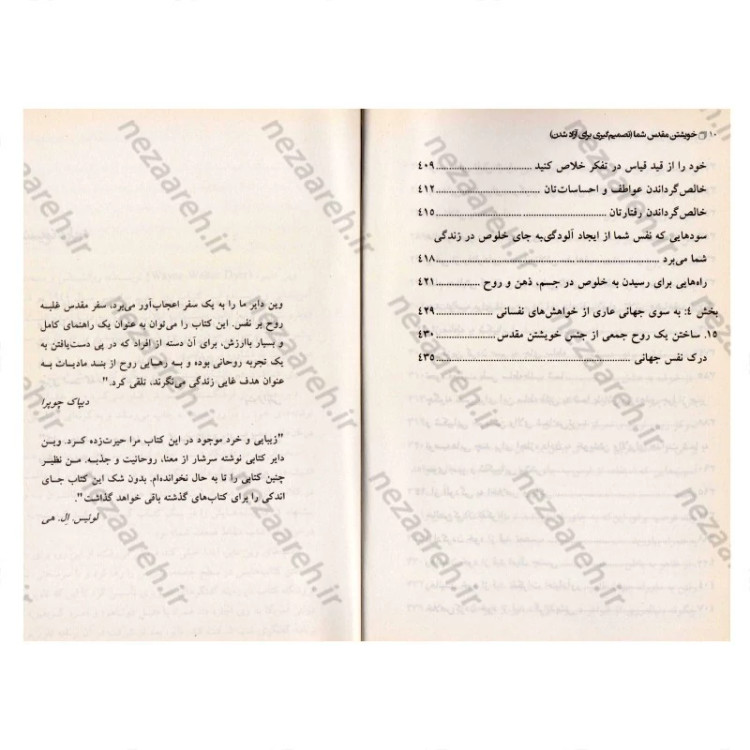 ۱۰ خویشتن مقدس شما (تصمیم‌گیری برای آزاد شدن)
خود را از قید قیاس در تفکر خلاص کنید ........ ۴۰۹
خالص‌گرداندن عواطف و احساسات‌تان ........ ۴۱۲
خالص‌گرداندن رفتارتان ........ ۴۱۵
سودهایی که نفس شما از ایجاد آلودگی‌به جای خلوص در زندگی
شما می‌برد ........ ۴۱۸
راه‌هایی برای رسیدن به خلوص در جسم، ذهن و روح ........ ۴۲۱
بخش ۴: به سوی جهانی عاری از خواهش‌های نفسانی ........ ۴۲۹
۱۵. ساختن یک روح جمعی از جنس خویشتن مقدس ........ ۴۳۰
درک نفس جهانی ........ ۴۳۵
وین دایر ما را به یک سفر اعجاب‌آور می‌برد، سفر مقدس غلبه
روح بر نفس. این کتاب را می‌توان به عنوان یک راهنمای کامل
و بسیار باارزش، برای آن دسته از افراد که در پی دست‌یافتن به
یک تجربه روحانی بوده و به رهایی روح از بند مادیات به
عنوان هدف غایی زندگی می‌نگرند، تلقی کرد."
دیپاک چوپرا
"زیبایی و خرد موجود در این کتاب مرا حیرت‌زده کرد. وین
دایر کتابی نوشته سرشار از معنا، روحانیت و جذبه. من نظیر
چنین کتابی را تا به حال نخوانده‌ام. بدون شک این کتاب جای
اندکی را برای کتاب‌های گذشته باقی خواهد گذاشت".
لوئیس اِل. هی
nezaareh.ir
nezaareh.ir
nezaareh.ir
nezaareh.ir
nezaareh.ir
nezaareh.ir
nezaareh.ir